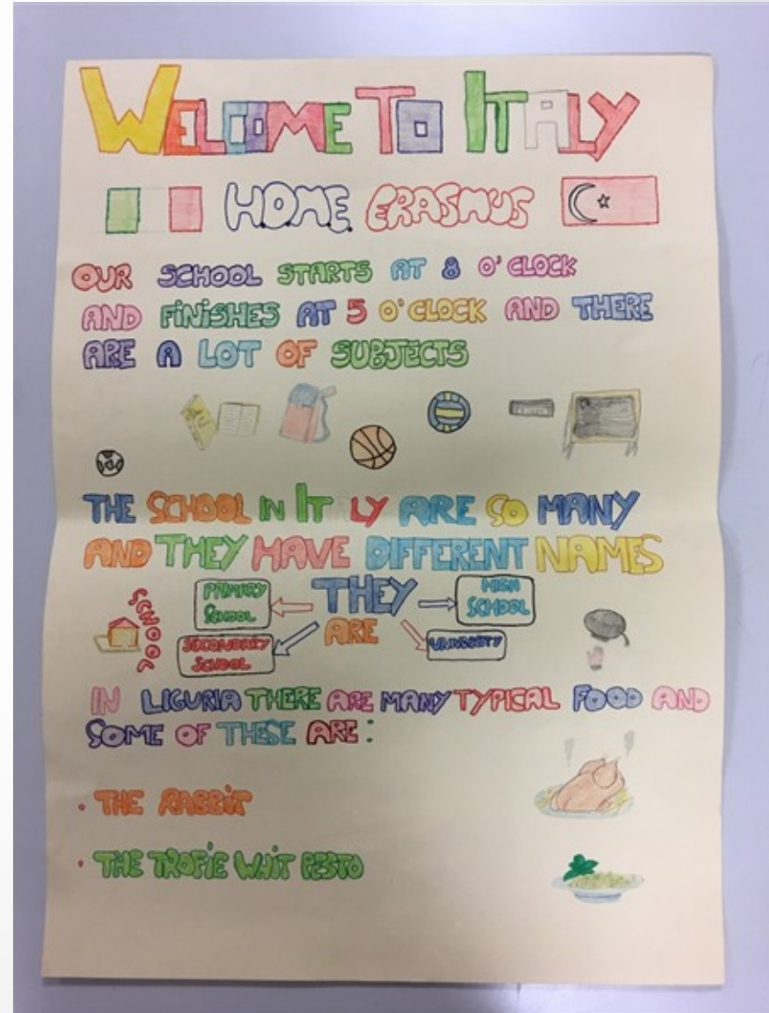 WELCOME TO ITALY
H.O.M.E. ERASMUS
OUR SCHOOL STARTS AT 8 O'CLOCK
AND FINISHES AT 5 O'CLOCK AND THERE
ARE A LOT OF SUBJECTS
THE SCHOOL IN ITALY ARE SO MANY
AND THEY HAVE DIFFERENT NAMES
SCHOOL
PRIMARY
SCHOOL
THEY
ARE
HIGH
SCHOOL
SECONDARY
SCHOOL
IN LIGURIA THERE ARE MANY TYPICAL FOOD AND
SOME OF THESE ARE:
• THE RABBIT
• THE TROFIE WHIT PESTO